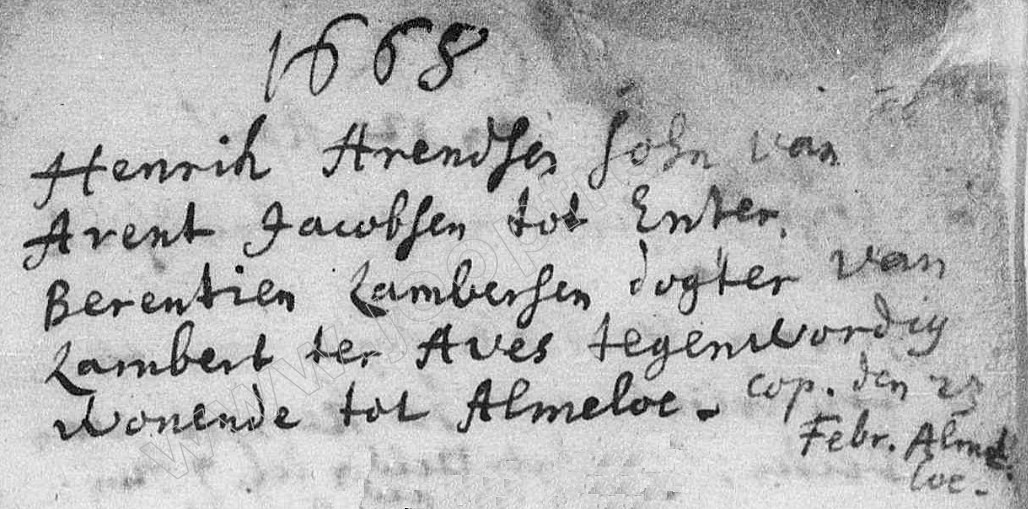 1668
Henrik Arendsen sohn van
Arent Jacobsen tot Enter.
Berentien Lambersen dogter van
Lambert ter Aves tegenwordig
wonende tot Almeloe. cop. den 23
Febr. Alme
loe.